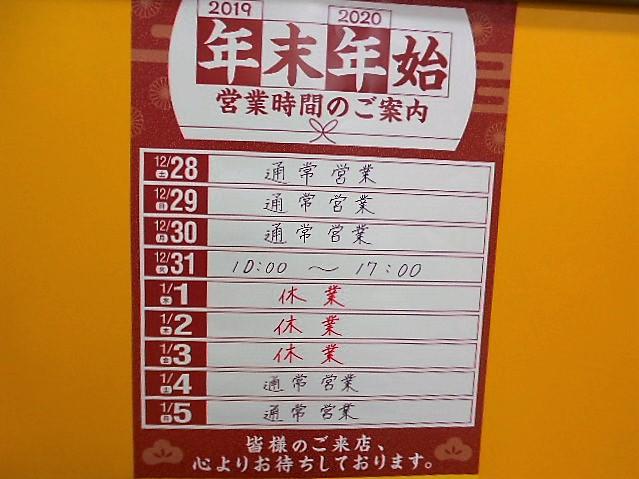 2019 2020
年末年始
営業時間のご案内
12/28 土 通常営業
12/29 日 通常営業
12/30 月 通常営業
12/31 火 10:00 ～ 17:00
1/1 水 休業
1/2 木 休業
1/3 金 休業
1/4 土 通常営業
1/5 日 通常営業
皆様のご来店、
心よりお待ちしております。